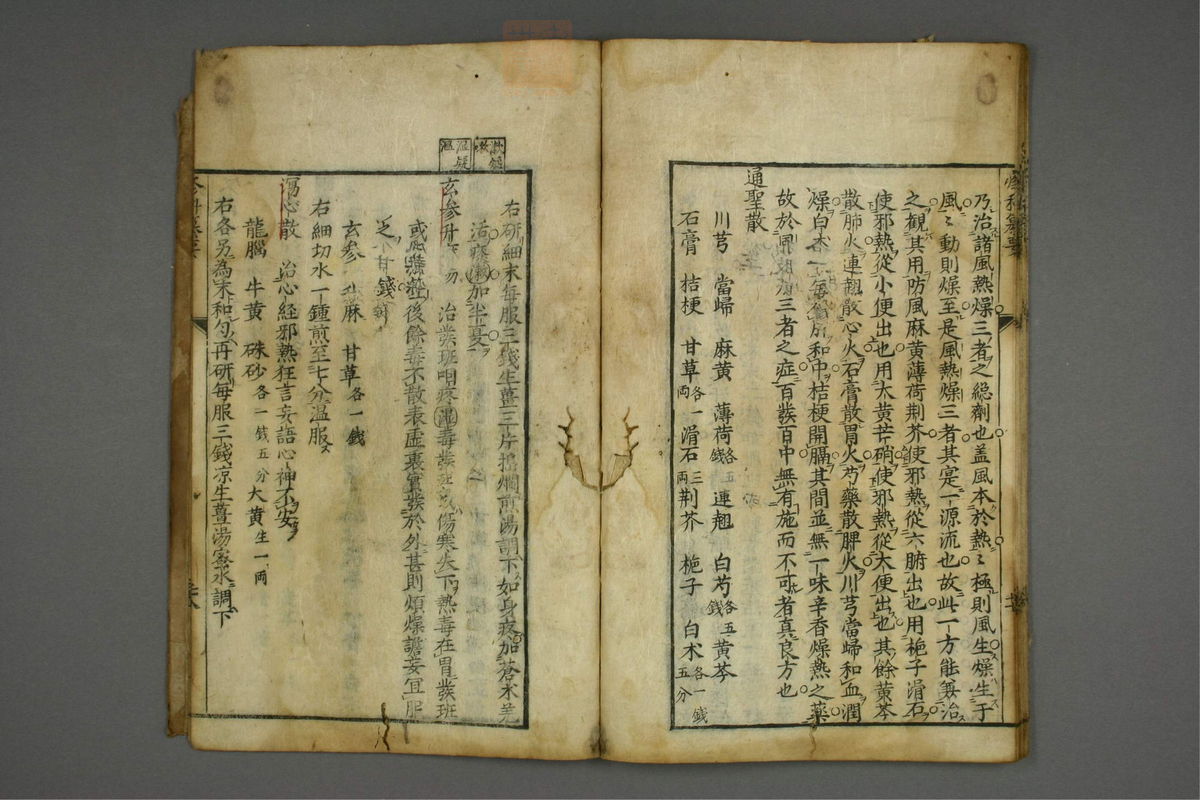 乃治諸風熱燥三者之緫劑也盖風本於熱〻極則風生燥生于
風〻動則燥至是風熱燥三者其寔一源流也故此一方能兼治
之観其用防風麻黄薄荷荆芥使邪熱從六腑出也用梔子滑石
使邪熱從小便出也用大黄芒硝使邪熱從大便出也其餘黄芩
散肺火連翹散心火石膏散胃火芍藥散脾火川芎當歸和血潤
燥白朮和中桔梗開膈其間並無一味辛香燥熱之藥
故於三者之症百發百中無有施而不可者真良方也
通聖散
川芎 當歸 麻黄 薄荷各五錢 連翹 白芍各五錢 黄芩
石膏 桔梗 甘草各一兩 滑石三兩 荆芥 梔子 白朮各一錢五分
右研細末每服三錢生薑三片搗爛煎湯調下如身疼加蒼朮羌
活痰嗽加半夏
玄参升 治發班咽疼濕毒發班傷寒失下熱毒在胃發班
後餘毒不散表虚裏實發於外甚則煩燥譫妄冝服
之
玄参 升麻 甘草各一錢
右細切水一鍾煎至七分温服
瀉心散 治心経邪熱狂言妄語心神不安
龍腦 牛黄 硃砂各一錢五分 大黄生一兩
右各另為末和勻再研每服三錢凉生薑湯蜜水調下